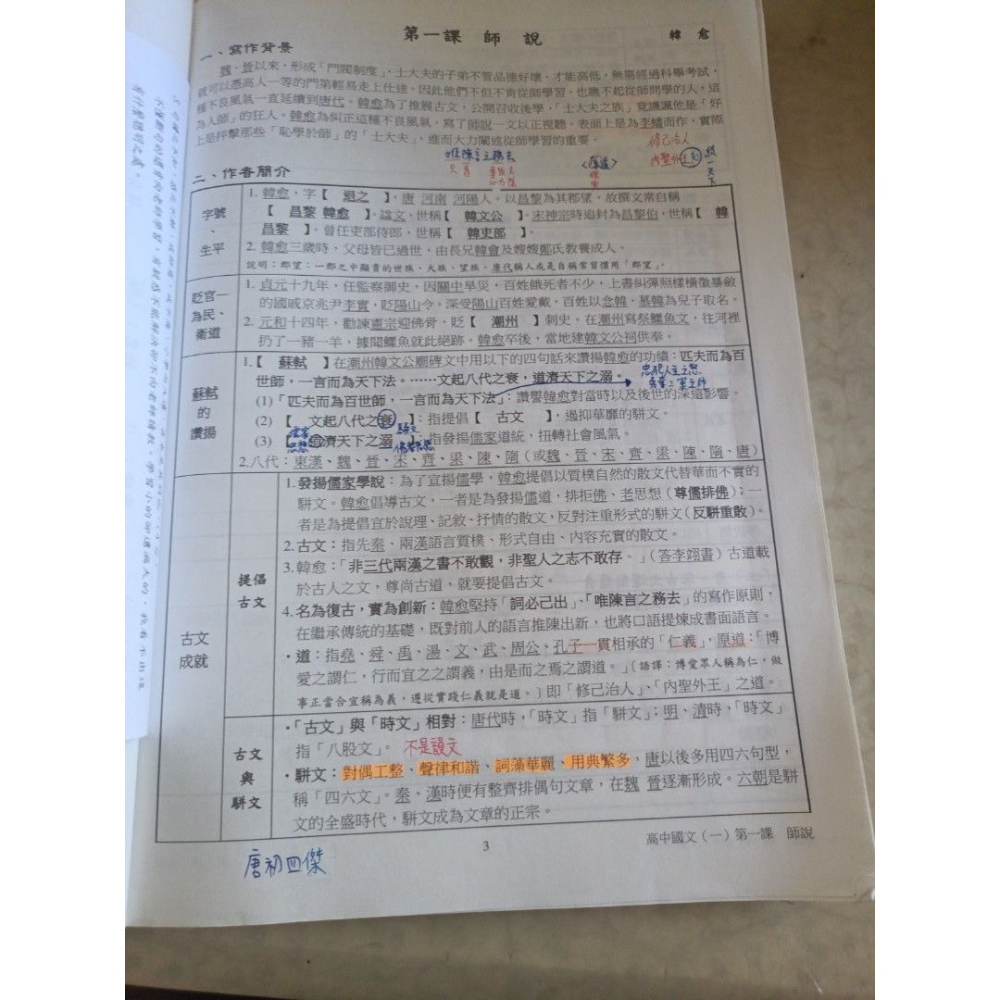 第一課 師 說
韓 愈
一、寫作背景
魏、晉以來,形成「門閥制度」,士大夫的子弟不管品德好壞、才能高低,無需經過科舉考試,
就可以憑高人一等的門第輕易走上仕途,因此他們不但不肯從師學習,也瞧不起從師問學的人,這
種不良風氣一直延續到唐代。韓愈為了推展古文,公開召收後學,「士大夫之族」竟譏諷他是「好
為人師」的狂人。韓愈為糾正這種不良風氣,寫了師說一文以正視聽。表面上是為李蟠而作,實際
上是抨擊那些「恥學於師」的「士大夫」,進而大力闡述從師學習的重要。
修己治人
唯陳言之務去
〈原道〉
內聖外王
二、作者簡介
字號、生平
1. 韓愈,字【 退之 】,唐 河南 河陽人。以昌黎為其郡望,故撰文常自稱
【 昌黎 韓愈 】。諡文,世稱【 韓文公 】。宋神宗時追封為昌黎伯,世稱【 韓
昌黎 】。曾任吏部侍郎,世稱【 韓吏部 】。
2. 韓愈三歲時,父母皆已過世,由長兄韓會及嫂嫂鄭氏教養成人。
說明:郡望:一郡之中顯貴的世族、大族、望族。唐代稱人或是自稱常習慣用「郡望」。
貶官—為民、衛道
1. 貞元十九年,任監察御史,因關中旱災,百姓餓死者不少,上書糾彈照樣橫徵暴斂
的國戚京兆尹李實,貶陽山令。深受陽山百姓愛戴,百姓以念韓、慕韓為兒子取名。
2. 元和十四年,勸諫憲宗迎佛骨,貶【 潮州 】刺史。在潮州寫祭鱷魚文,往河裡
扔了一豬一羊,據聞鱷魚就此絕跡。韓愈卒後,當地建韓文公祠供奉。
蘇軾的讚揚
1.【 蘇軾 】在潮州韓文公廟碑文中用以下的四句話來讚揚韓愈的功績:匹夫而為百
世師,一言而為天下法。……文起八代之衰,道濟天下之溺。
忠犯人主之怒
(1)「匹夫而為百世師,一言而為天下法」:讚譽韓愈對當時以及後世的深遠影響。
(2)【 文起八代之衰 】:指提倡【 古文 】,遏抑華靡的駢文。
(3)【 道濟天下之溺 】:指發揚儒家道統,扭轉社會風氣。
2.八代:東漢、魏、晉、宋、齊、梁、陳、隋(或魏、晉、宋、齊、梁、陳、隋、唐)
古文成就
提倡古文
1.發揚儒家學說:為了宣揚儒學,韓愈提倡以質樸自然的散文代替華而不實的
駢文。韓愈倡導古文,一者是為發揚儒道,排拒佛、老思想(尊儒排佛);一
者是為提倡宜於說理、記敘、抒情的散文,反對注重形式的駢文(反駢重散)。
2.古文:指先秦、兩漢語言質樸、形式自由、內容充實的散文。
3.韓愈:「非三代兩漢之書不敢觀,非聖人之志不敢存。」(答李翊書)古道載
於古人之文,尊尚古道,就要提倡古文。
4.名為復古,實為創新:韓愈堅持「詞必己出」、「唯陳言之務去」的寫作原則,
在繼承傳統的基礎,既對前人的語言推陳出新,也將口語提煉成書面語言。
・道:指堯、舜、禹、湯、文、武、周公、孔子一貫相承的「仁義」,原道:「博
愛之謂仁,行而宜之之謂義,由是而之焉之謂道。」〔語譯:博愛眾人稱為仁,做
事正當合宜稱為義,遵從實踐仁義就是道。〕即「修己治人」、「內聖外王」之道。
古文與駢文
・「古文」與「時文」相對:唐代時,「時文」指「駢文」;明、清時,「時文」
指「八股文」。
・駢文:對偶工整、聲律和諧、詞藻華麗、用典繁多,唐以後多用四六句型,
稱「四六文」。秦、漢時便有整齊排偶句文章,在魏 晉逐漸形成。六朝是駢
文的全盛時代,駢文成為文章的正宗。
3
高中國文(一)第一課 師說
唐初四傑